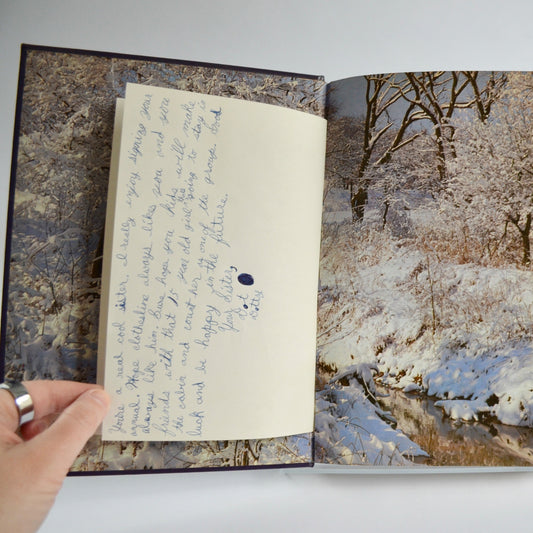 You're a real cool sister. I really enjoy signing your
annual. Hope clothesline always like you and you
always like him. Sure hope you kids will make
friends with that 15 year old girl going to stay is
the cabin and count her as one of the group. Good
luck and be happy in the future.
Your Sister
Dot